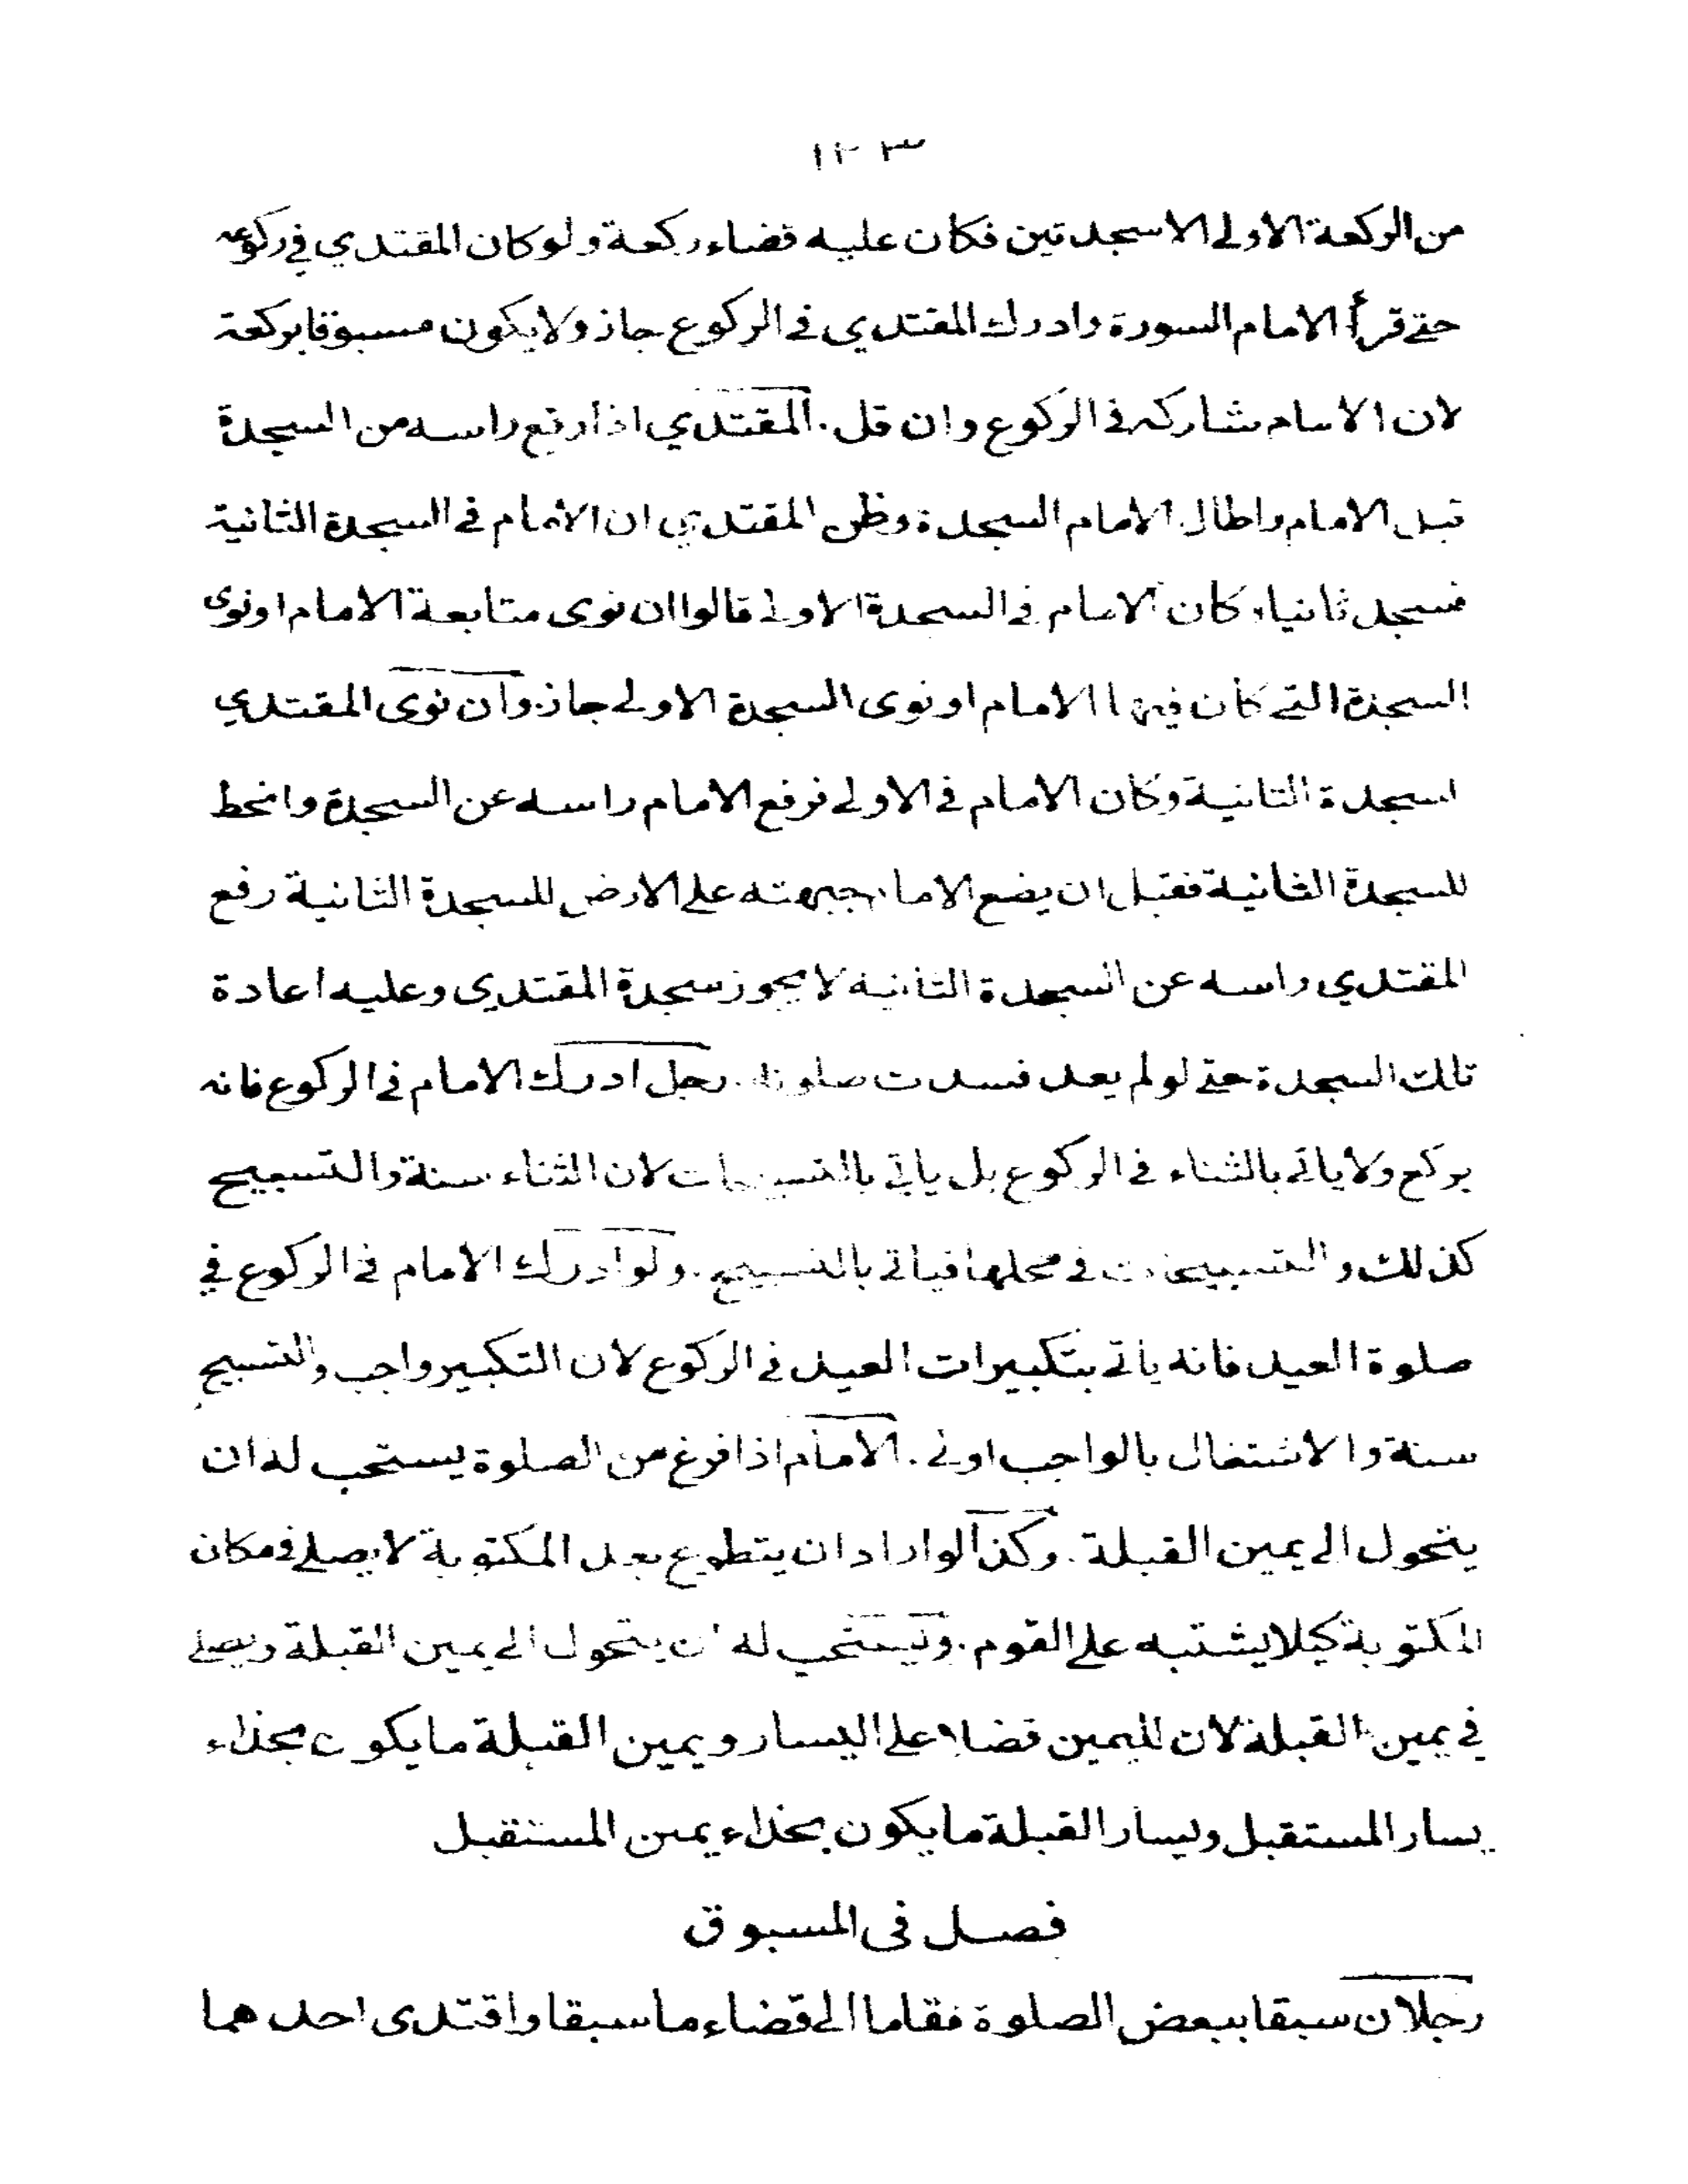 ١٢٣
من الركعة الاولى الا سجدتين فكان عليه قضاء ركعة ولو كان المقتدي في ركوعه
حتى قرأ الامام السورة وادرك المقتدي في الركوع جاز ولا يكون مسبوقا بركعة
لان الامام شاركه في الركوع وان قل. المقتدي اذا رفع راسه من السجدة
قبل الامام واطال الامام السجدة وظن المقتدي ان الامام في السجدة الثانية
فسجد ثانيا وكان الامام في السجدة الاولى قالوا ان نوى متابعة الامام او نوى
السجدة التي كان فيها الامام او نوى السجدة الاولى جاز. وان نوى المقتدي
السجدة الثانية وكان الامام في الاولى فرفع الامام راسه عن السجدة وانحط
للسجدة الثانية فقبل ان يضع الامام جبهته على الارض للسجدة الثانية رفع
المقتدي راسه عن السجدة الثانية لا يجوز سجدة المقتدي وعليه اعادة
تلك السجدة حتى لو لم يعد فسدت صلوته. رجل ادرك الامام في الركوع فانه
يركع ولا ياتي بالثناء في الركوع بل ياتي بالتسبيحات لان الثناء سنة والتسبيح
كذلك والتسبيحات في محلها فياتي بالتسبيح. ولو ادرك الامام في الركوع في
صلوة العيد فانه ياتي بتكبيرات العيد في الركوع لان التكبير واجب والتسبيح
سنة والاشتغال بالواجب اولى. الامام اذا فرغ من الصلوة يستحب له ان
يتحول الى يمين القبلة. وكذا لو اراد ان يتطوع بعد المكتوبة لا يصلي في مكان
المكتوبة كيلا يشتبه على القوم. ويستحب له ان يتحول الى يمين القبلة ويصلي
في يمين القبلة لان لليمين فضلا على اليسار ويمين القبلة ما يكون بحذاء
يسار المستقبل ويسار القبلة ما يكون بحذاء يمين المستقبل
فصل في المسبوق
رجلان سبقا ببعض الصلوة فقاما الى قضاء ما سبقا واقتدى احدهما